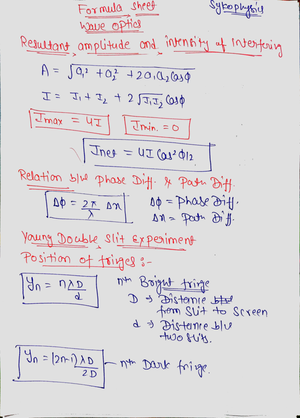 Formula sheet
Wave optics
Resultant amplitude and intensity of Interfering
A = √a₁² + a₂² + 2a₁a₂Cosϕ
I = I₁ + I₂ + 2√I₁I₂ Cosϕ
Imax = 4I Imin. = 0
Inet = 4I Cos²ϕ/2
Relation b/w Phase Diff. & Path Diff.
Δϕ = 2π/λ Δx Δϕ = Phase Diff.
Δx = Path Diff.
Young Double Slit Experiment
Position of fringes :-
Yn = nλD/d nth Bright fringe
D → Distance
from Slit to Screen
d → Distance b/w
two slits.
Yn = (2n-1)λD/2D → nth Dark fringe.